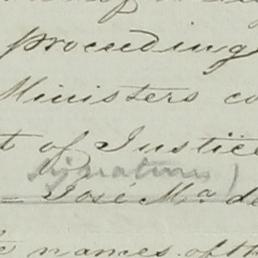 proceeding
Ministers co
t of Justice
signatures)
= José Mª de
names of the